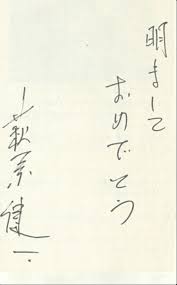 明まして
おめでとう
萩原健一